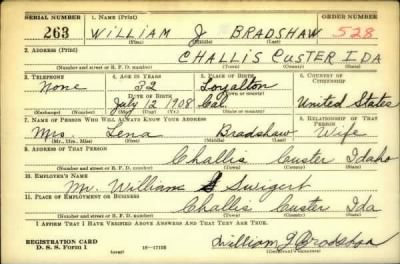 SERIAL NUMBER 1. NAME (Print) ORDER NUMBER
263 WILLIAM J BRADSHAW 528
(First) (Middle) (Last)
2. ADDRESS (Print)
CHALLIS CUSTER IDA
(Number and street or R. F. D. number) (Town) (County) (State)
3. TELEPHONE 4. AGE IN YEARS 5. PLACE OF BIRTH 6. COUNTRY OF CITIZENSHIP
None 32 Loyalton
DATE OF BIRTH
July 12 1908 Cal. United States
(Mo.) (Day) (Yr.)
7. NAME OF PERSON WHO WILL ALWAYS KNOW YOUR ADDRESS 8. RELATIONSHIP OF THAT PERSON
Mrs. Lena Bradshaw Wife
(Mr., Mrs., Miss) (First) (Middle) (Last)
9. ADDRESS OF THAT PERSON
Challis Custer Idaho
(Number and street or R. F. D. number) (Town) (County) (State)
10. EMPLOYER'S NAME
Mr. William Swigert
11. PLACE OF EMPLOYMENT OR BUSINESS
Challis Custer Ida
(Number and street or R. F. D. number) (Town) (County) (State)
I AFFIRM THAT I HAVE VERIFIED ABOVE ANSWERS AND THAT THEY ARE TRUE.
REGISTRATION CARD
D. S. S. Form 1 (over) 16—17105 William J Bradshaw